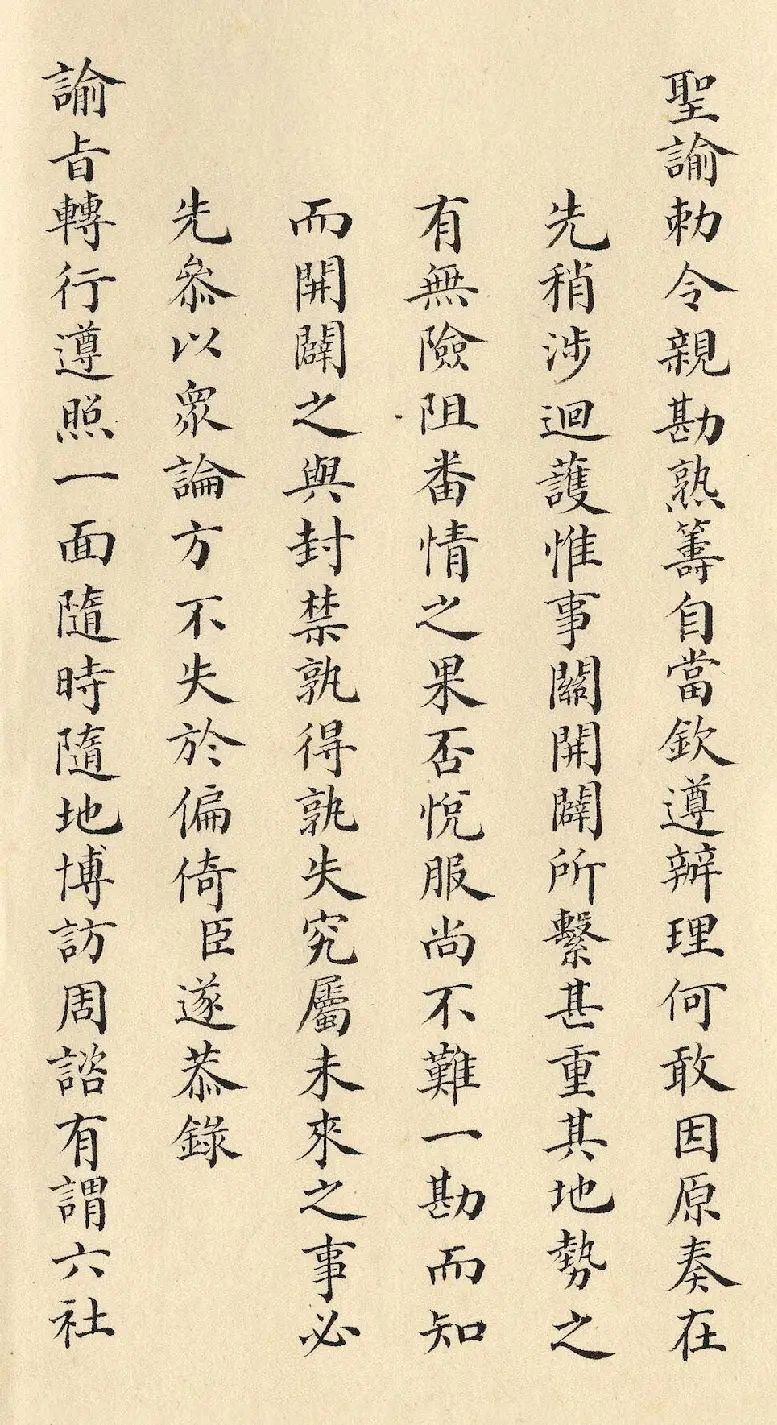 聖諭勅令親勘熟籌自當欽遵辦理何敢因原奏在
先稍涉迴護惟事關開闢所繫甚重其地勢之
有無險阻番情之果否悅服尚不難一勘而知
而開闢之與封禁孰得孰失究屬未來之事必
先叅以衆論方不失於偏倚臣遂恭錄
諭旨轉行遵照一面隨時隨地博訪周諮有謂六社